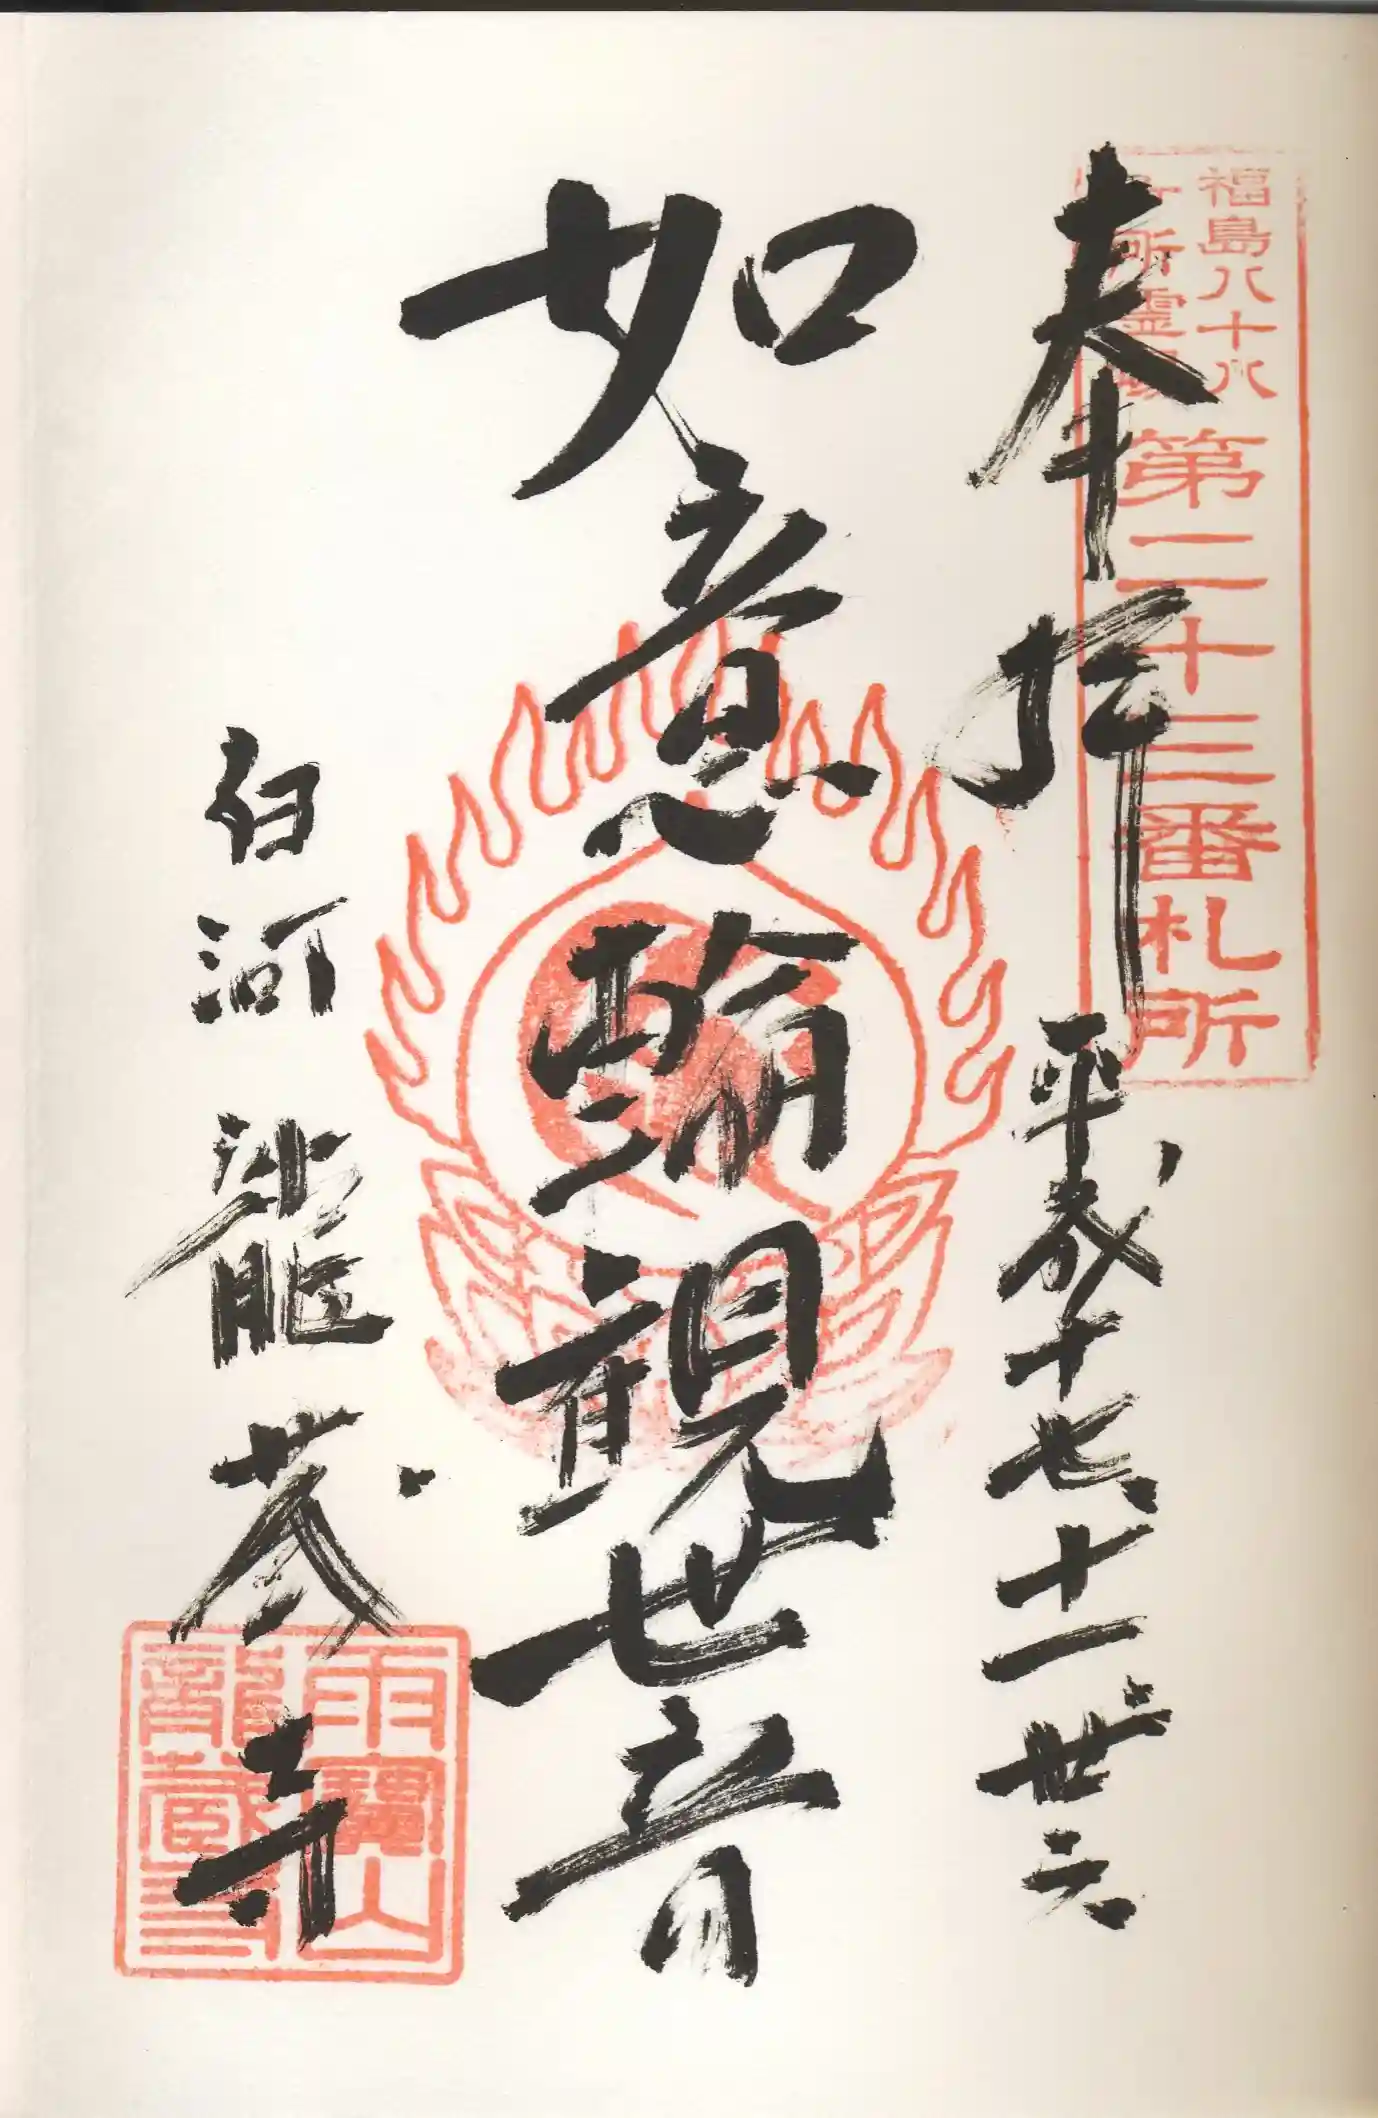 福島八十八
ヶ所霊場
第二十三番札所
奉拝 平成十七、十一、廿六
如意輪観世音
白河 龍蔵寺
雨寶山
龍蔵寺